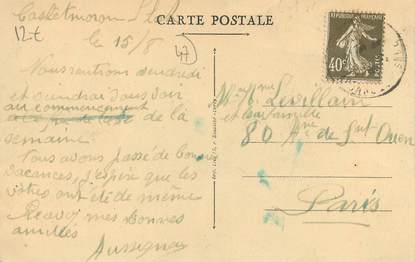 CARTE POSTALE
12-t
le 15/8
47
Nous rentrons vendredi
et viendrai vous voir
au commencement
de la
semaine.
Nous avons passé de bonnes
vacances, j'espère que les
votres ont été de même
Recevez mes bonnes
amitiés
RÉPUBLIQUE FRANÇAISE
40c
POSTES
Mr Mme Levillain
et sa famille
80 Ave de St Ouen
Paris